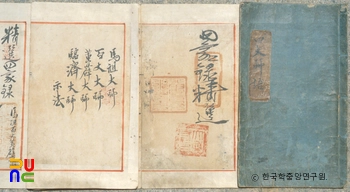 四家錄精選
馬祖大師
百丈大師
黃蘗大師
臨濟大師
示法
精選四家錄
© 한국학중앙연구원